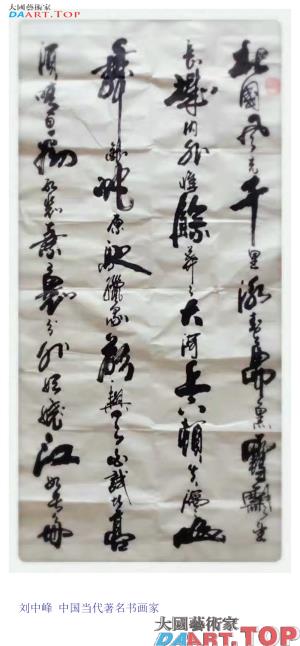 大國藝術家
DAART.TOP
北國風光千里冰封萬里雪飄望
長城內外惟餘莽莽大河上下頓失滔滔山
舞銀蛇原馳蠟象欲與天公試比高
須晴日看紅裝素裹分外妖嬈江
刘中峰 中国当代著名书画家
大國藝術家
DAART.TOP